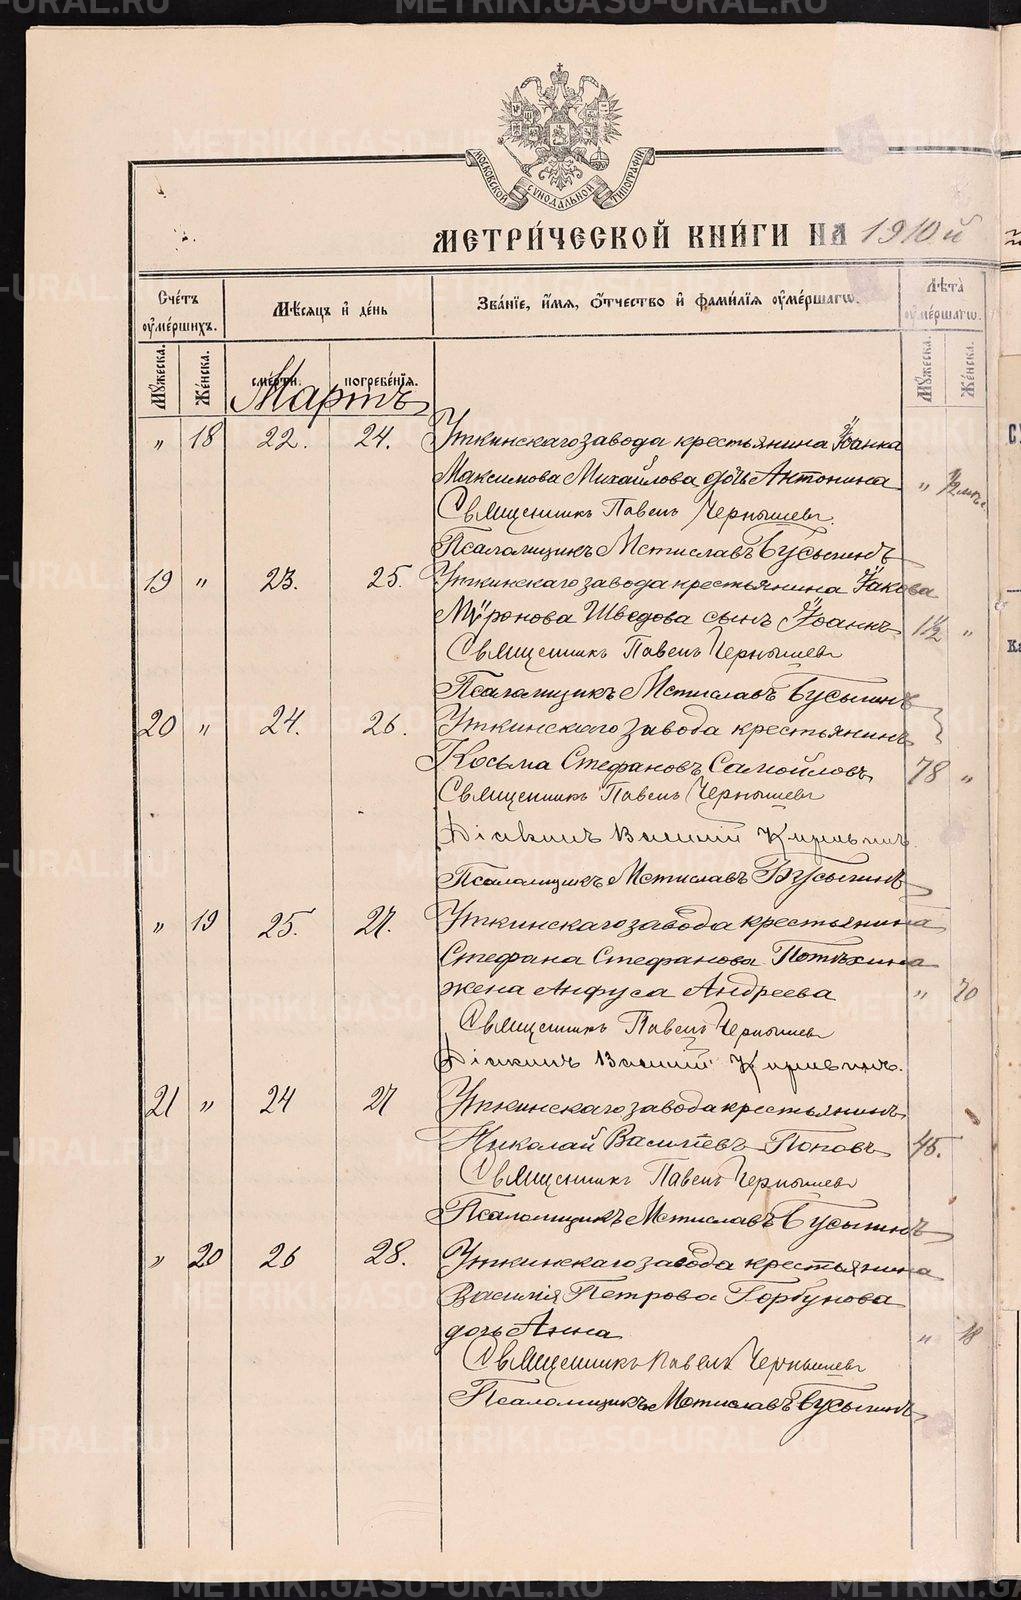 METRIKI.GASO-URAL.RU
МОСКОВСКОЙ СѴНОДАЛЬНОЙ ТИПОГРАФІИ
МЕТРИ́ЧЕСКОЙ КНИ́ГИ НА 1910й
Сче́тъ ᲂу҆ме́ршихъ.
Мѣ́сяцъ и҆ де́нь
Зва́нїе, и҆́мя, ѻ҆́тчество и҆ фами́лїя ᲂу҆ме́ршагѡ.
Лѣ́та ᲂу҆ме́ршагѡ.
Мꙋ́жеска. Же́нска. сме́рти. погребе́нїя. Мꙋ́жеска. Же́нска.
Мартъ
„ 18 22. 24. Уткинскаго завода крестьянина Іоанна
Максимова Михайлова дочь Антонина „ ½
Священникъ Павелъ Чернышевъ.
Псаломщикъ Мстиславъ Бусыгинъ
19 „ 23. 25. Уткинскаго завода крестьянина Іакова
Мѵронова Шведова сынъ Іоаннъ 1½ „
Священникъ Павелъ Чернышевъ
Псаломщикъ Мстиславъ Бусыгинъ
20 „ 24. 26. Уткинскаго завода крестьянинъ
Косьма Стефановъ Самойловъ 78 „
Священникъ Павелъ Чернышевъ
Діаконъ Василій
Псаломщикъ Мстиславъ Бусыгинъ
„ 19 25. 27. Уткинскаго завода крестьянина
Стефана Стефанова Потѣхина
жена Анфуса Андреева „ 70
Священникъ Павелъ Чернышевъ
Діаконъ Василій
21 „ 24 27 Уткинскаго завода крестьянинъ
Николай Васильевъ Поповъ 45.
Священникъ Павелъ Чернышевъ
Псаломщикъ Мстиславъ Бусыгинъ
„ 20 26 28. Уткинскаго завода крестьянина
Василія Петрова Горбунова
дочь Анна „ 18
Священникъ Павелъ Чернышевъ
Псаломщикъ Мстиславъ Бусыгинъ